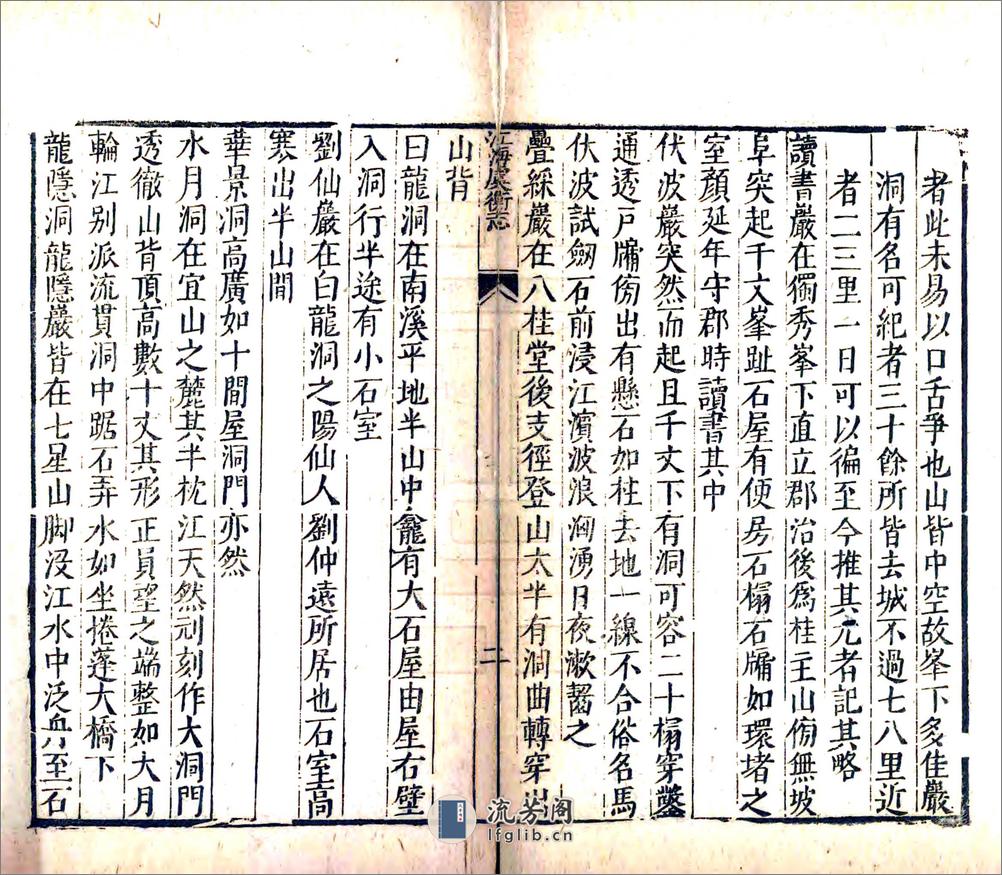 者此未易以口舌爭也山皆中空故峯下多佳巖
洞有名可紀者三十餘所皆去城不過七八里近
者二三里一日可以徧至今推其尤者記其略
讀書巖在獨秀峯下直立郡治後爲桂主山傍無坡
阜突起千丈峯趾石屋有便房石榻石牖如環堵之
室顔延年守郡時讀書其中
伏波巖突然而起且千丈下有洞可容二十榻穿鑿
通透戶牖傍出有懸石如柱去地一線不合俗名馬
伏波試劒石前浸江濱波浪洶湧日夜漱齧之
疊綵巖在八桂堂後支徑登山太半有洞曲轉穿出
山背
桂海虞衡志
二
曰龍洞在南溪平地半山中龕有大石屋由屋右壁
入洞行半途有小石室
劉仙巖在白龍洞之陽仙人劉仲遠所居也石室高
寒出半山間
華景洞高廣如十間屋洞門亦然
水月洞在宜山之麓其半枕江天然刓刻作大洞門
透徹山背頂高數十丈其形正員望之端整如大月
輪江别派流貫洞中踞石弄水如坐捲蓬大橋下
龍隱洞龍隱巖皆在七星山脚没江水中泛舟至石
流芳阁
lfglib.cn